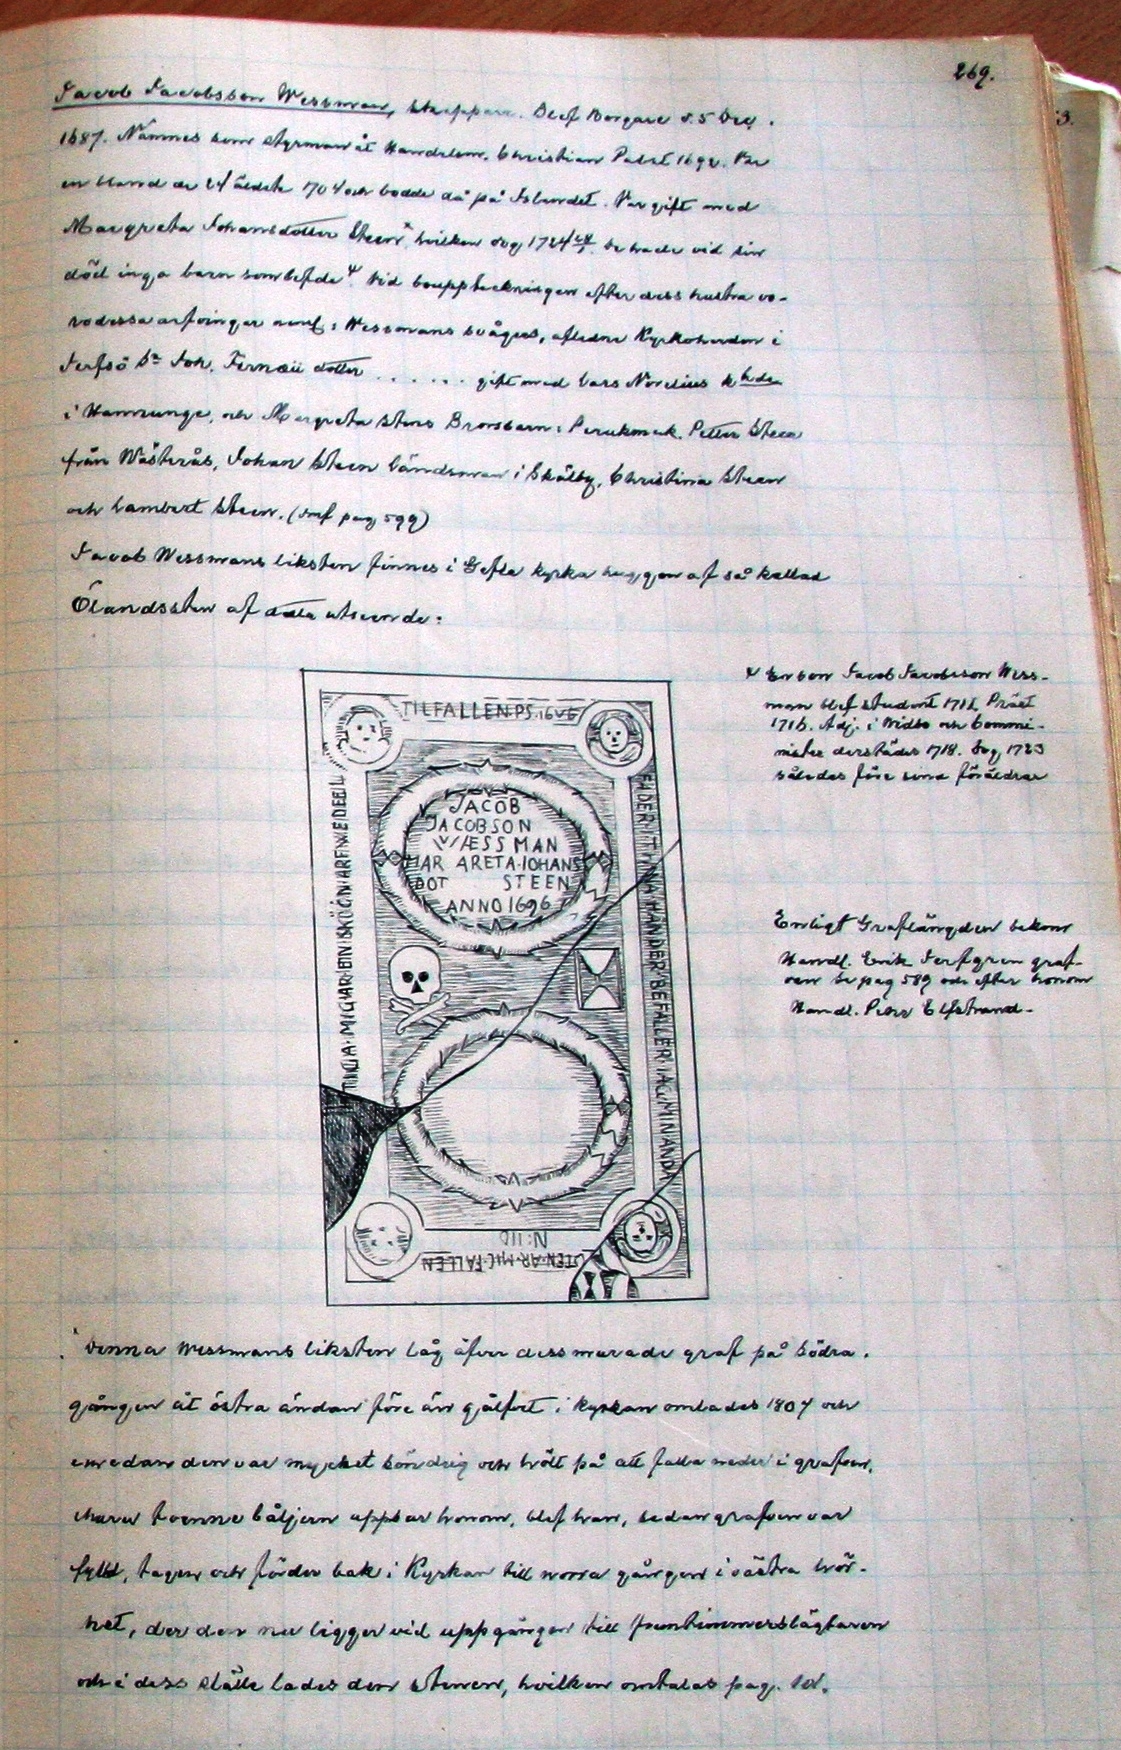 269.
Jacob Jacobsson Wessman, skeppare. Blef Borgare d. 5 Dec.
1687. Nämnes som styrman åt Handelsm. Christian 1692.
en bland de 24 äldste 1704 och bodde då på Islandet. Var gift med
Margreta Johansdotter Steen hvilken dog 1724. De hade vid sin
död inga barn som lefde. Vid bouppteckningen efter dess hustru vo-
ro dessa arfvingar neml: Wessmans svågers, aflidne Kyrkoherden i
Jerfsö Joh. Fernæii dotter ...... gift med Lars Norelius
i Hamrange, och Margreta Stens Brorsbarn: Perukmak. Petter Steen
från Wästerås, Johan Steen länsman i Skälby, Christina Steen
och Lambert Steen. (Jmf pag 599)
Jacob Wessmans liksten finnes i Gefle kyrka huggen af så kallad
Ölandssten af detta utseende:
TILFALLEN PS. 16 V 6
JACOB
JACOBSON
WÆSSMAN
MAR ARETA IOHANS
DOT STEEN
ANNO 1696
HÄNDER BEFALLER IAG MIN ANDA
N: 110
STEN AR MIG FALLEN
En son Jacob Jacobsson Wess-
man blef student 1711, Präst
1716. Adj. i och Commi-
nister derstädes 1718. Dog 1723
således före sina föräldrar
Enligt Graflängden bekom
Handl. Erik Jerfgren graf-
ven se pag 589 och efter honom
Handl. Pehr Elfstrand.
Denna Wessmans liksten låg öfver dess murade graf på Södra
gången åt östra ändan före än golfvet i kyrkan omlades 1804 och
emedan den var mycket söndrig och höll på att falla neder i grafven,
tvenne bäljern uppbar honom, blef han, sedan grafven var
fylld, tagen och förder bak i Kyrkan till norra gången i västra hör-
net, der den nu ligger vid uppgången till fruntimmersläktaren
och i dess ställe lades den stenen, hvilken omtalas pag.